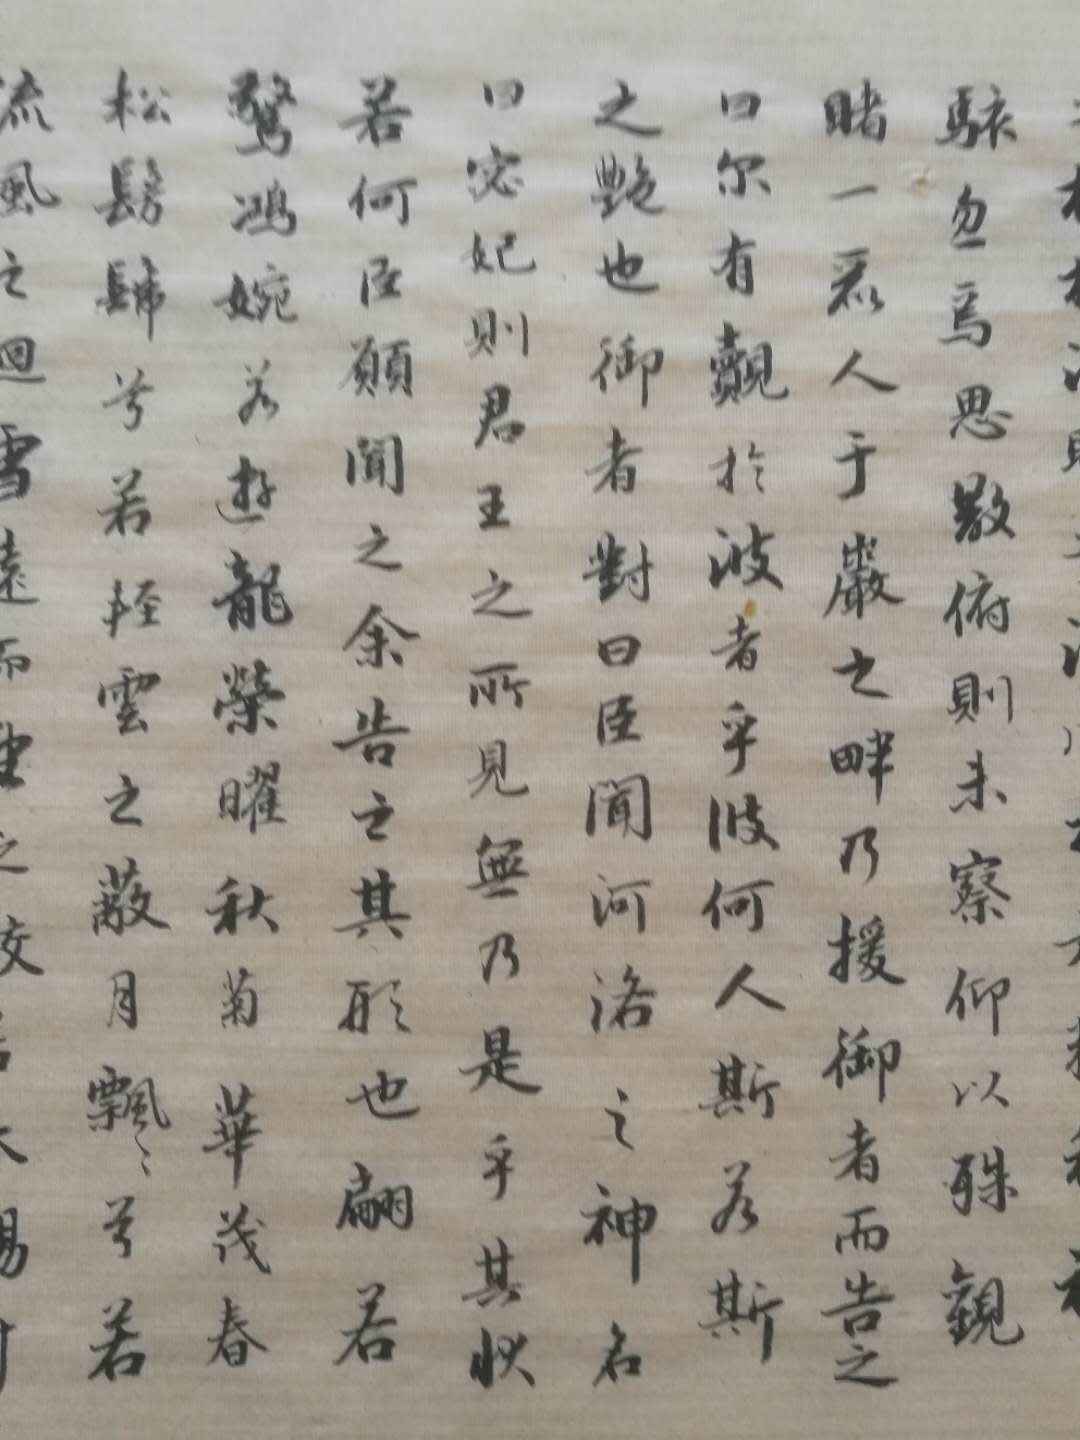 駭忽焉思散俯則未察仰以殊觀
睹一麗人于巖之畔乃援御者而告之
曰尔有覿於彼者乎彼何人斯若斯
之艷也御者對曰臣聞河洛之神名
曰宓妃則君王之所見無乃是乎其狀
若何臣願聞之余告之其形也翩若
驚鴻婉若遊龍榮曜秋菊華茂春
松髣髴兮若輕雲之蔽月飄〻兮若
流風之迴雪遠而望之皎